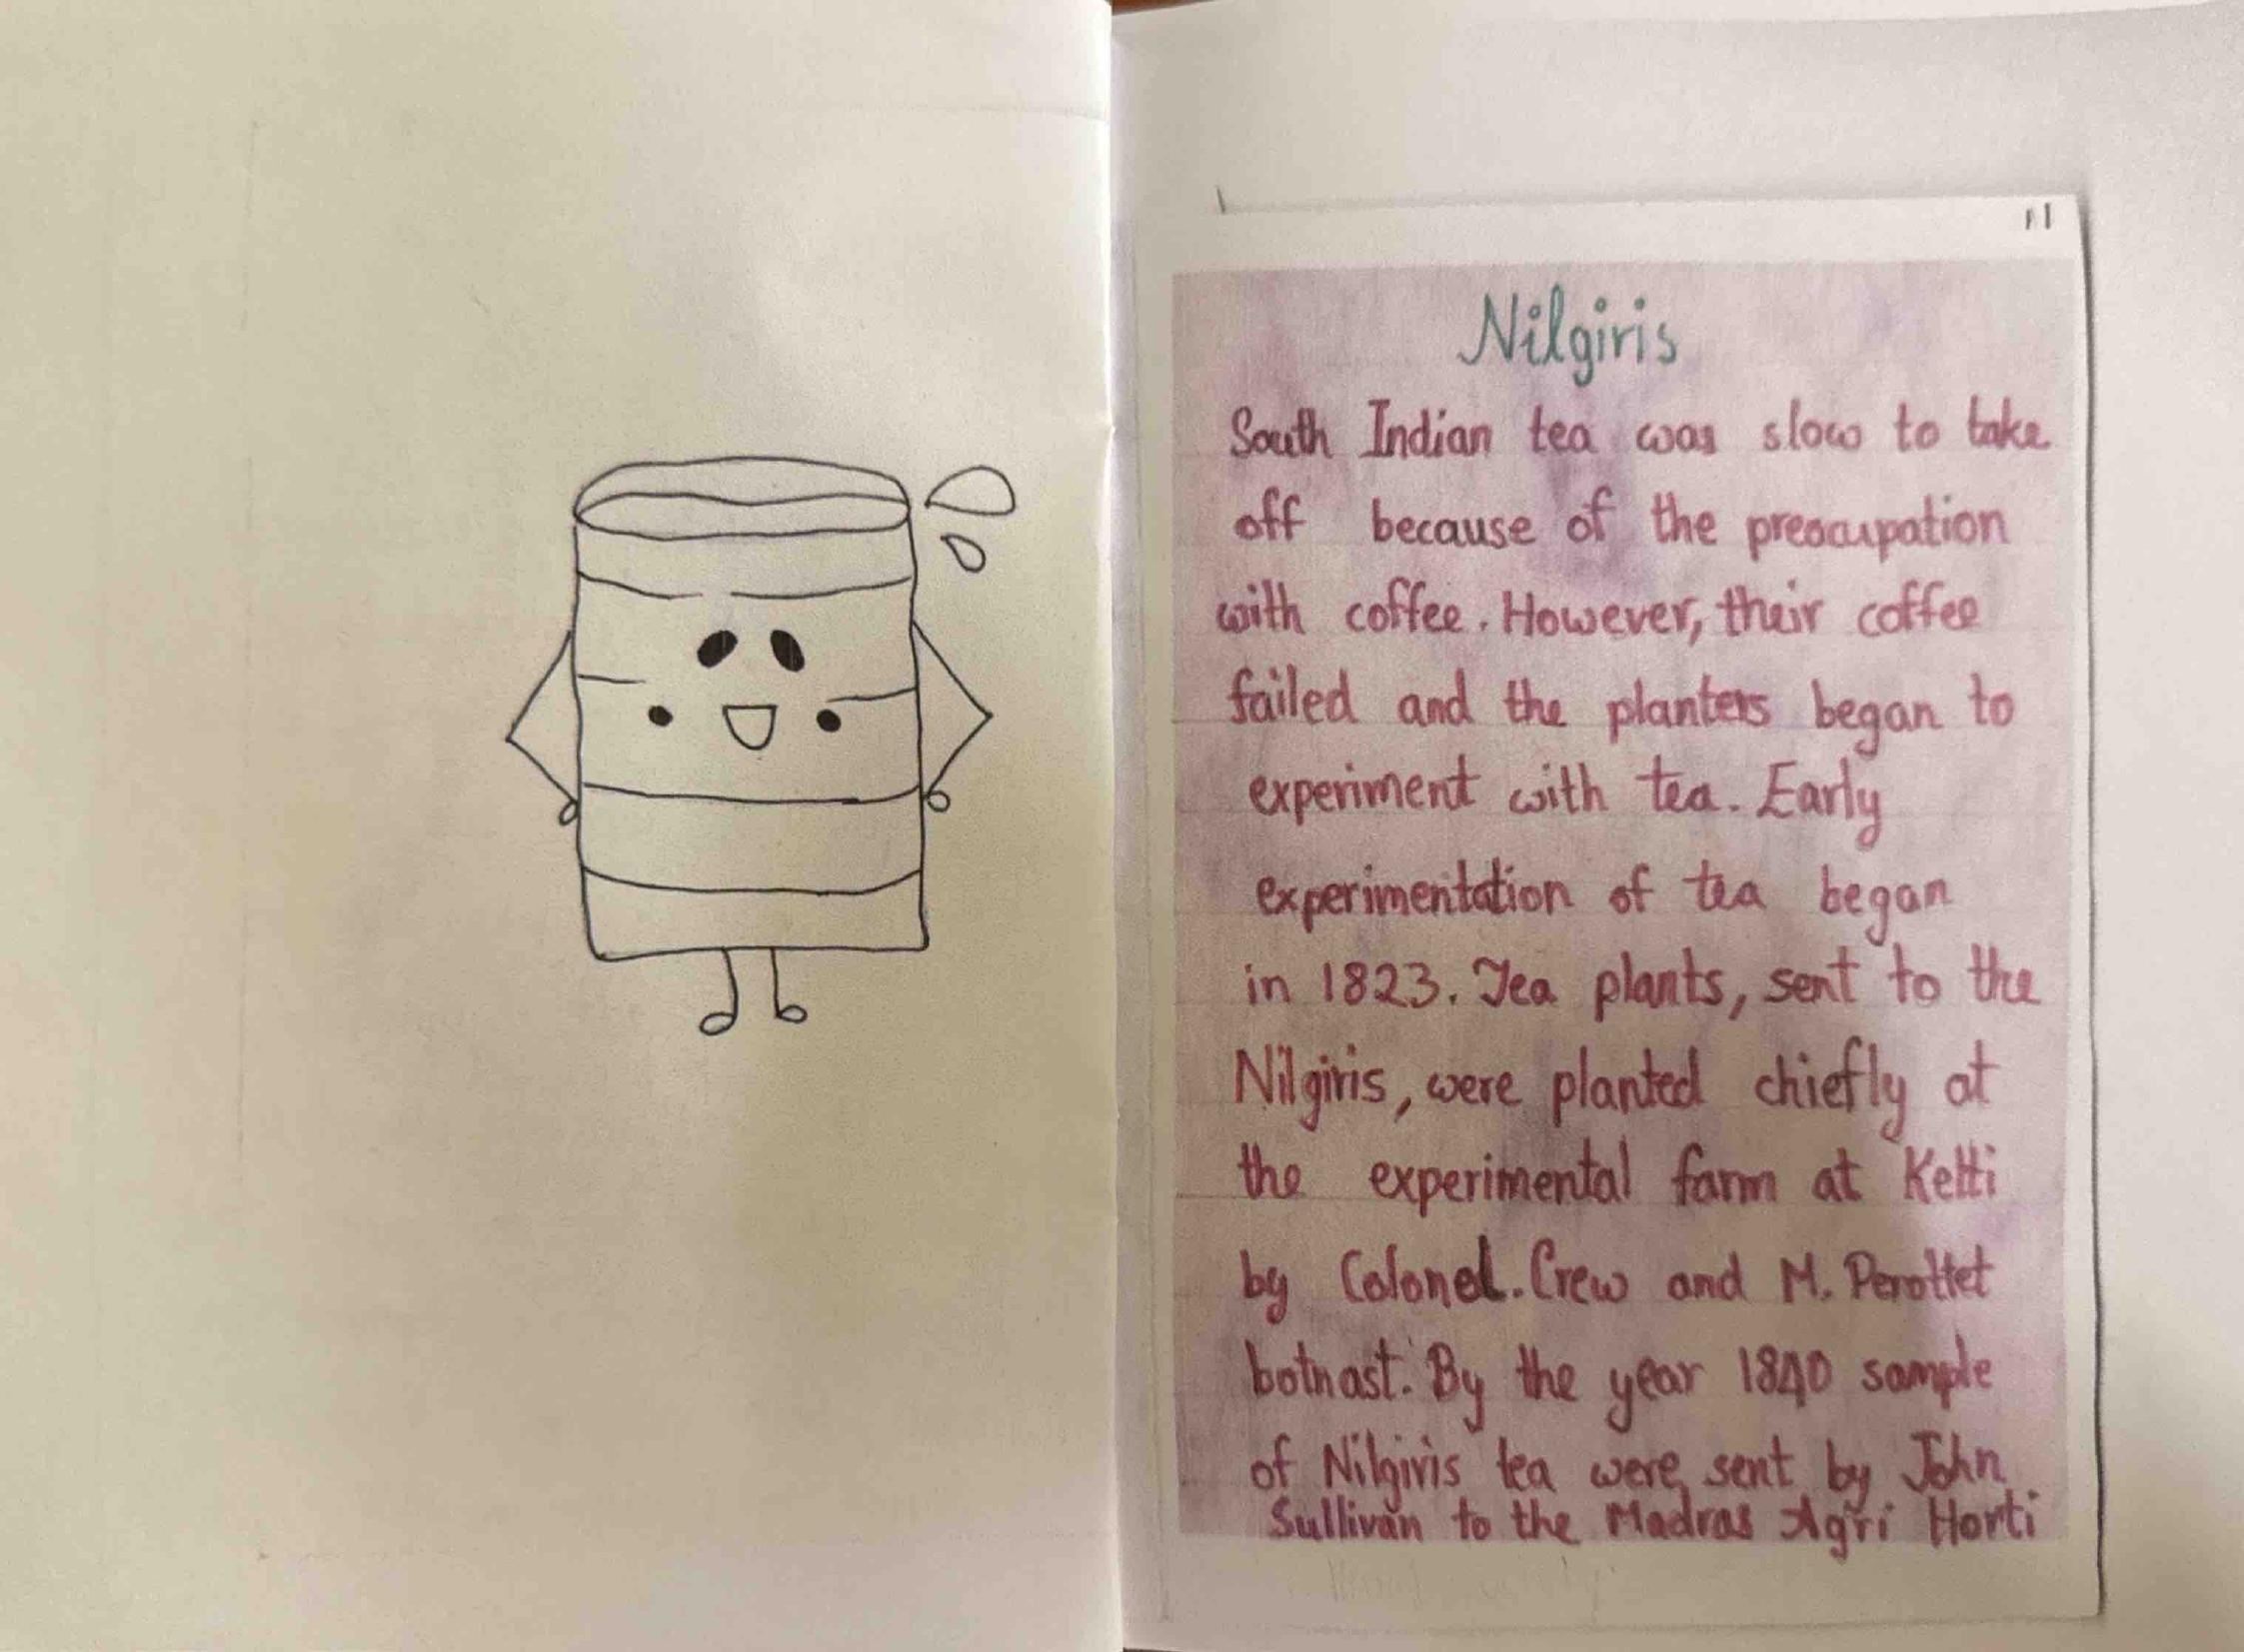 11
Nilgiris
South Indian tea was slow to take
off because of the preocupation
with coffee. However, their coffee
failed and the planters began to
experiment with tea. Early
experimentation of tea began
in 1823. Tea plants, sent to the
Nilgiris, were planted chiefly at
the experimental farm at Ketti
by Colonel. Crew and M. Perottet
botnast. By the year 1840 sample
of Nilgiris tea were sent by John
Sullivan to the Madras Agri Horti